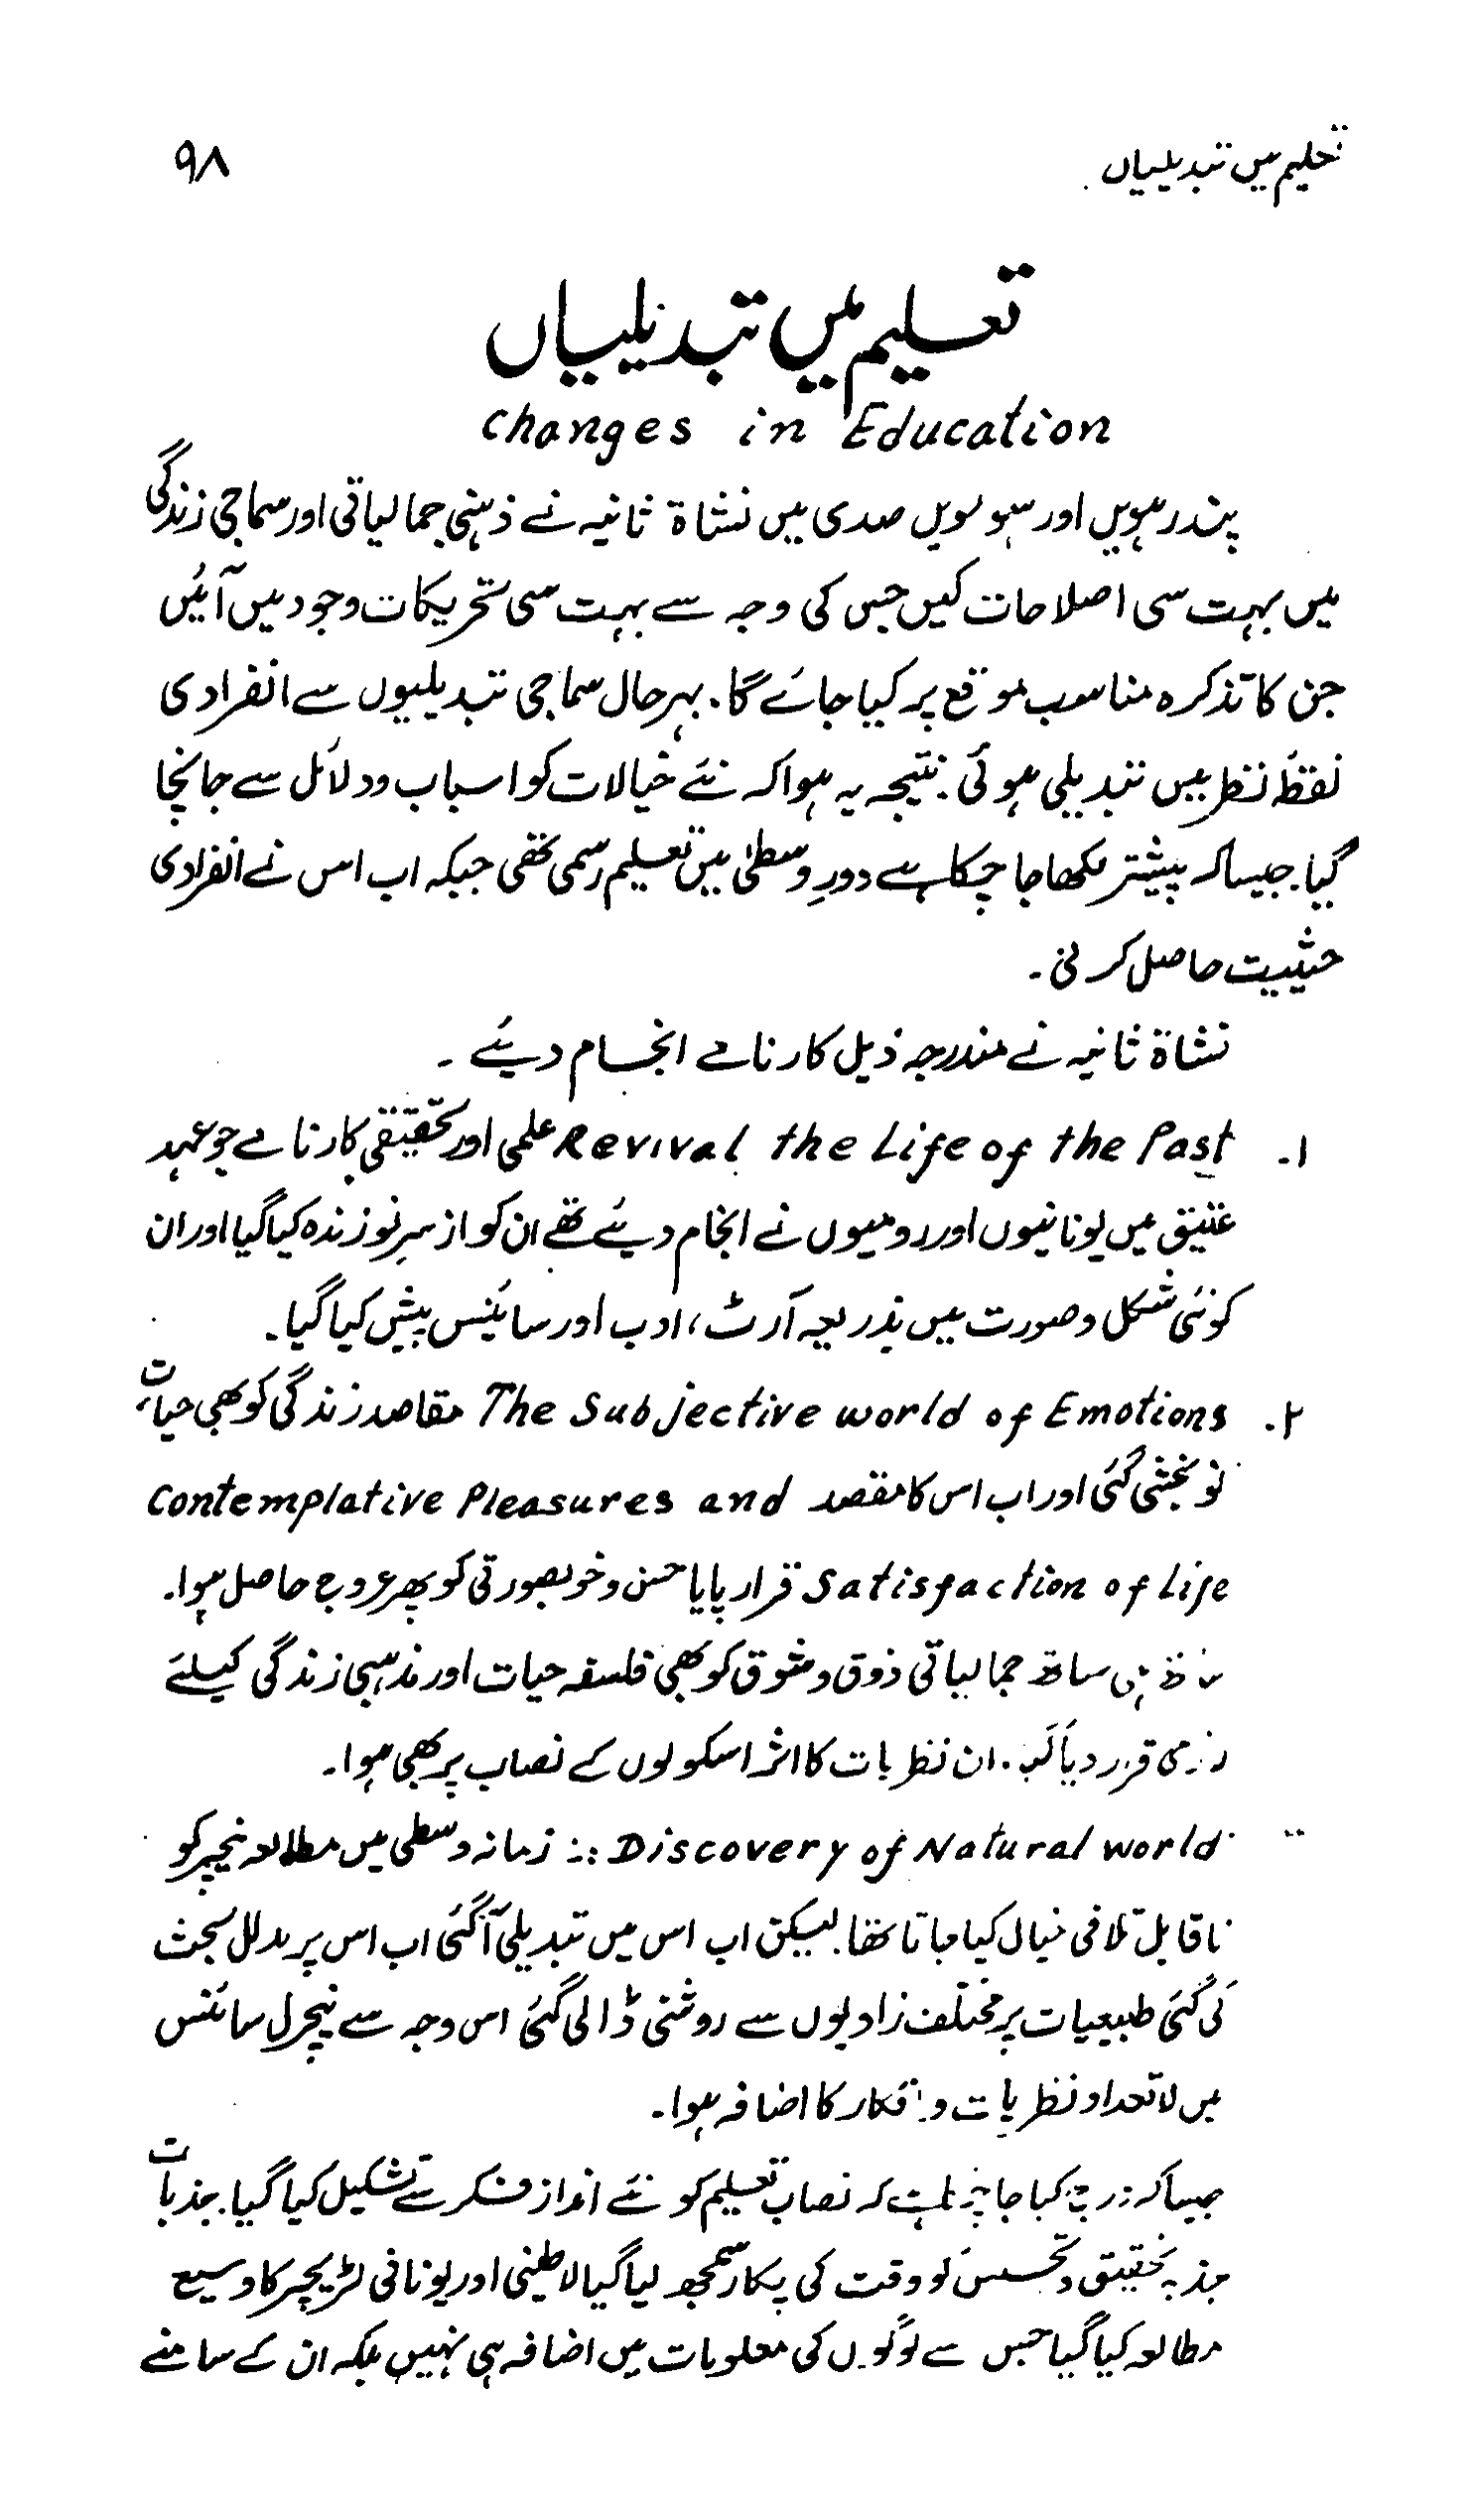 تعلیم میں تبدیلیاں ۹۸
تعلیم میں تبدیلیاں
Changes in Education
پندرہویں اور سولہویں صدی میں نشاۃ ثانیہ نے ذہنی جمالیاتی اور سماجی زندگی
میں بہت سی اصلاحات کیں جس کی وجہ سے بہت سی تحریکات وجود میں آئیں
جن کا تذکرہ مناسب موقع پر کیا جائے گا۔ بہر حال سماجی تبدیلیوں سے انفرادی
نقطۂ نظر میں تبدیلی ہوئی۔ نتیجہ یہ ہوا کہ نئے خیالات کو اسباب و دلائل سے جانچا
گیا۔ جیسا کہ پیشتر لکھا جا چکا ہے دورِ وسطیٰ میں تعلیم رسمی تھی جبکہ اب اس نے انفرادی
حیثیت حاصل کر لی۔
نشاۃ ثانیہ نے مندرجہ ذیل کارنامے انجام دیئے ۔
۱۔ Revival the Life of the Past علمی اور تحقیقی کارنامے جو عہد
عتیق میں یونانیوں اور رومیوں نے انجام دیئے تھے ان کو از سرِ نو زندہ کیا گیا اور ان
کو نئی شکل و صورت میں بذریعہ آرٹ، ادب اور سائینس پیش کیا گیا۔
۲۔ The Subjective world of Emotions مقاصد زندگی کو بھی حیات
نو بخشی گئی اور اب اس کا مقصد Contemplative Pleasures and
Satisfaction of Life قرار پایا حسن و خوبصورتی کو پھر عروج حاصل ہوا۔
ساتھ ہی ساتھ جمالیاتی ذوق و شوق کو بھی فلسفہ حیات اور مذہبی زندگی کیلئے
قرار دیا گیا۔ ان نظریات کا اثر اسکولوں کے نصاب پر بھی ہوا۔
Discovery of Natural world :: زمانہ وسطی میں مطالعہ نیچر کو
ناقابل تلافی خیال کیا جاتا تھا۔ لیکن اب اس میں تبدیلی آگئی اب اس پر مدلل بحث
کی گئی طبیعیات پر مختلف زاویوں سے روشنی ڈالی گئی اس وجہ سے نیچرل سائنس
میں لا تعداد نظریات و افکار کا اضافہ ہوا۔
جیسا کہ کیا جا کہ نصاب تعلیم کو نئے انداز فکر سے تشکیل کیا گیا۔ جذبات
جذبہ تحقیق و تجسس کو وقت کی پکار سمجھ لیا گیا لاطینی اور یونانی لٹریچر کا وسیع
مطالعہ کیا گیا جس سے لوگوں کی معلومات میں اضافہ ہی نہیں بلکہ ان کے سامنے